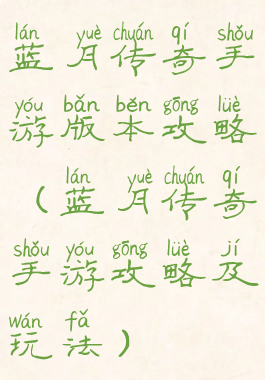 lán yuè chuán qí shǒu
蓝月传奇手
yóu bǎn běn gōng lüè
游版本攻略
lán yuè chuán qí
（蓝月传奇
shǒu yóu gōng lüè jí
手游攻略及
wán fǎ
玩法）